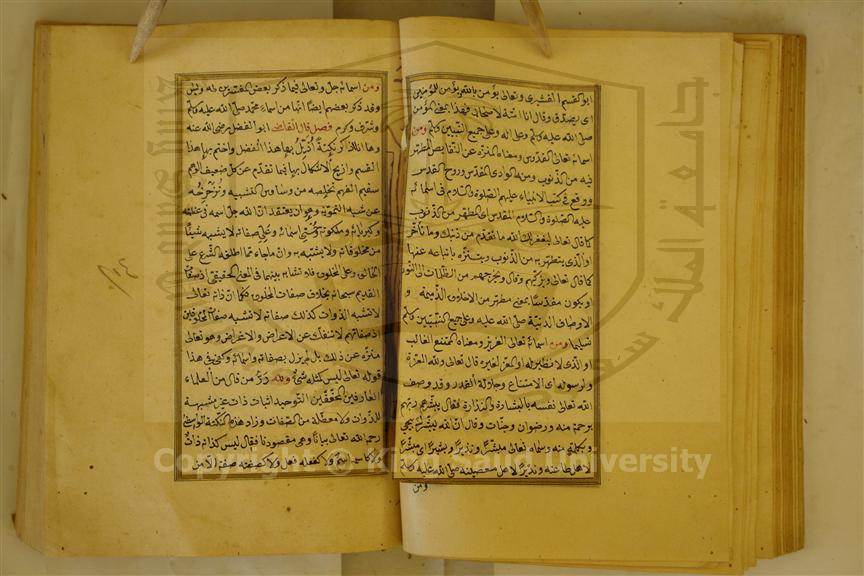 ابو القسم القشيرى وتعالى يؤمن بالله ويؤمن للمؤمنين
اى يصدق وقال انا امنة لاصحابى فهذا بمعنى المؤمن
صلى الله عليه وسلم وعلى اله وعلى جميع النبيين كلهم ومن
اسمائه تعالى القدوس ومعناه المنزه عن النقايص المطهر
فيه من الذنوب ومنه الوادى المقدس وروح القدس
ووقع فى كتب الانبياء عليهم الصلوة والسلام فى اسمائه
عليه الصلوة والسلام المقدس اى المطهر من الذنوب
كما قال تعالى ليغفر لك الله ما تقدم من ذنبك وما تأخر
او الذى يتطهر به من الذنوب ويتنزه باتباعه عنها
كما قال تعالى ويزكيهم وقال ويخرجهم من الظلمات الى النور
او يكون مقدسا بمعنى مطهر من الاخلاق الذميمة و
الاوصاف الدنية صلى الله عليه وعلى جميع النبيين وسلم
تسليما ومن اسمائه تعالى العزيز ومعناه الممتنع الغالب
او الذى لا نظير له او المعز لغيره قال تعالى ولله العزة
ولرسوله اى الامتناع وجلالة القدر وقد وصف
الله تعالى نفسه بالبشارة والنذارة فقال يبشرهم ربهم
برحمة منه ورضوان وجنات وقال ان الله يبشرك بيحيى
وبكلمة منه وسماه تعالى مبشرا ونذيرا وبشيرا اى مبشرا
لاهل طاعته ونذيرا لاهل معصيته صلى الله عليه وسلم
ومن
ومن اسمائه جل وتعالى فيما ذكر بعض المفسرين طه ويس
وقد ذكر بعضهم ايضا انها من اسماء محمد صلى الله عليه وسلم
وشرف وكرم فصل قال القاضى ابو الفضل رضى الله عنه
وها انا اذكر نكتة اذيل بها هذا الفصل واختم بها هذا
القسم وازيح الاشكال بها فيما تقدم عن كل ضعيف الوهم
سقيم الفهم تخلصه من وساوس التشبيه وتزحزحه
عن شبه التمويه وهو ان يعتقد ان الله جل اسمه فى عظمته
وكبريائه وملكوته وحسنى اسمائه وعلى صفاته لا يشبه شيئا
من مخلوقاته ولا يشبه به وان ما جاء مما اطلقه الشرع على
الخالق وعلى المخلوق فلا تشابه بينهما فى المعنى الحقيقى اذ صفات
القديم سبحانه بخلاف صفات المخلوق فكما ان ذاته تعالى
لا تشبه الذوات كذلك صفاته لا تشبه صفات المخلوقين
اذ صفاتهم لا تنفك عن الاعراض والاغراض وهو تعالى
منزه عن ذلك بل لم يزل بصفاته واسمائه وكفى فى هذا
قوله تعالى ليس كمثله شئ ولله در من قال من العلماء
العارفين المحققين التوحيد اثبات ذات غير مشبهة
للذوات ولا معطلة من الصفات وزاد هذه النكتة الواسطى
رحمه الله تعالى بيانا وهى مقصودنا فقال ليس كذاته ذات
ولا كاسمه اسم ولا كفعله فعل ولا كصفته صفة الا من
Copyright © King Saud University
جامعة الملك سعود